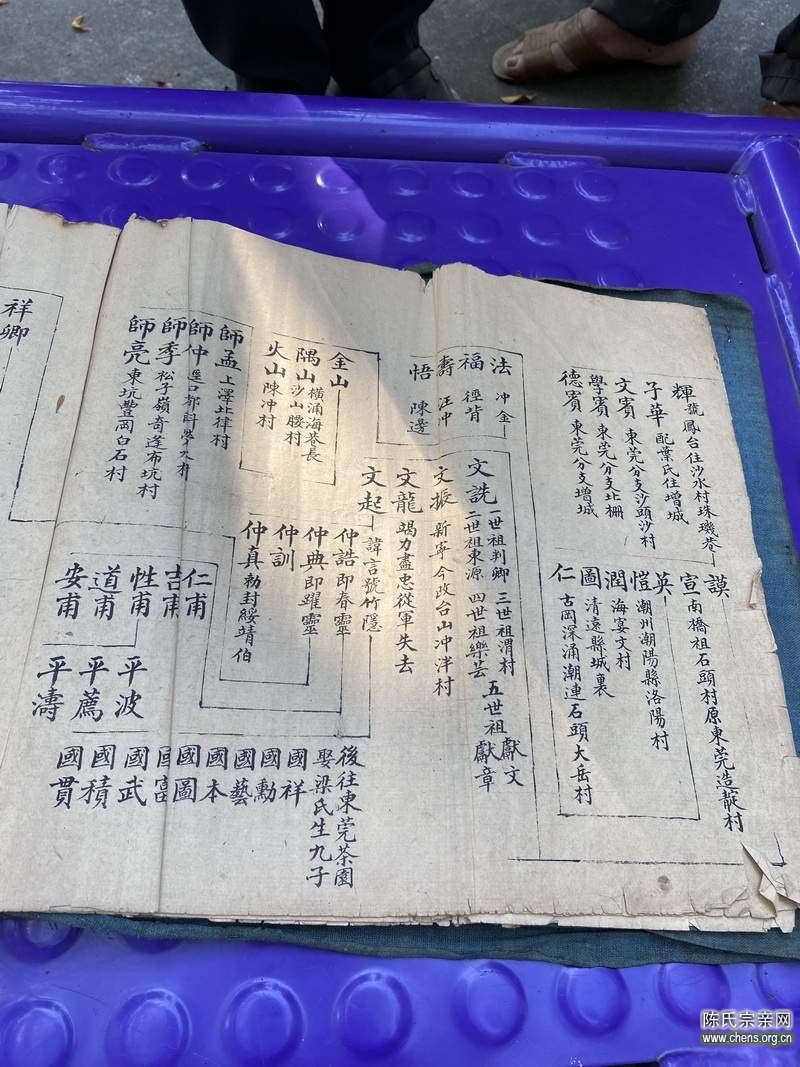 輝 號鳳台住沙水村珠璣巷
子華 配葉氏住增城
文賓 東莞分支沙頭沙村
學賓 東莞分支北柵
德賓 東莞分支增城
謨
宣 南橋祖石頭村原東莞造靛村
英
愷 潮州潮陽縣洛陽村
潤 海宴文村
圖 清遠縣城裏
仁 古岡深涌潮連石頭大岳村
法 冲金
福 徑背
壽 汪冲
悟 陳邊
文詵 一世祖判卿 三世祖渭村 五世祖獻文
二世祖東源 四世祖樂芸 獻章
文振 新寧今政台山冲泮村
文龍 竭力盡忠從軍失去
文起 諱言號竹隱
後往東莞茶園
娶梁氏生九子
金山
隅山 橫涌海巷長
沙山腰村
火山 陳冲村
仲誥 即春靈
仲典 即躍靈
仲訓
仲真 勅封綏靖伯
國祥
國勳
國藝
國本
國圖
國富
國武
國積
國貫
師孟 上澤北律村
師仲
師季 松子嶺奇逢布坑村
師亮 東坑豐岡白石村
仁甫
吉甫
性甫
道甫
安甫
平波
平薦
平濤
祥卿
陈氏宗亲网
www.chens.org.cn